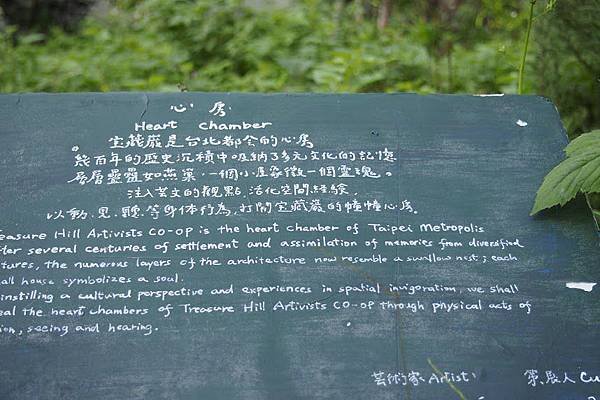 心房
Heart chamber
宝藏巖是台北都會的心房
。幾百年的歷史沉積中吸納了多元文化的記憶
層層疊疊如燕巢，一個小屋象徵一個靈魂。
注入芸文的觀點，活化空間經驗，
以動、見、聽、等身体行為，打開宝藏巖的幢幢心房。
easure Hill Artivists CO-OP is the heart chamber of Taipei Metropolis
ter several centuries of settlement and assimilation of memories from diversified
tures, the numerous layers of the architecture now resemble a swallow nest; each
all house symbolizes a soul.
instilling a cultural perspective and experiences in spatial invigoration, we shall
eal the heart chambers of Treasure Hill Artivists CO-OP through physical acts of
ion, seeing and hearing.
芸術家 Artist: 策展人 Cu